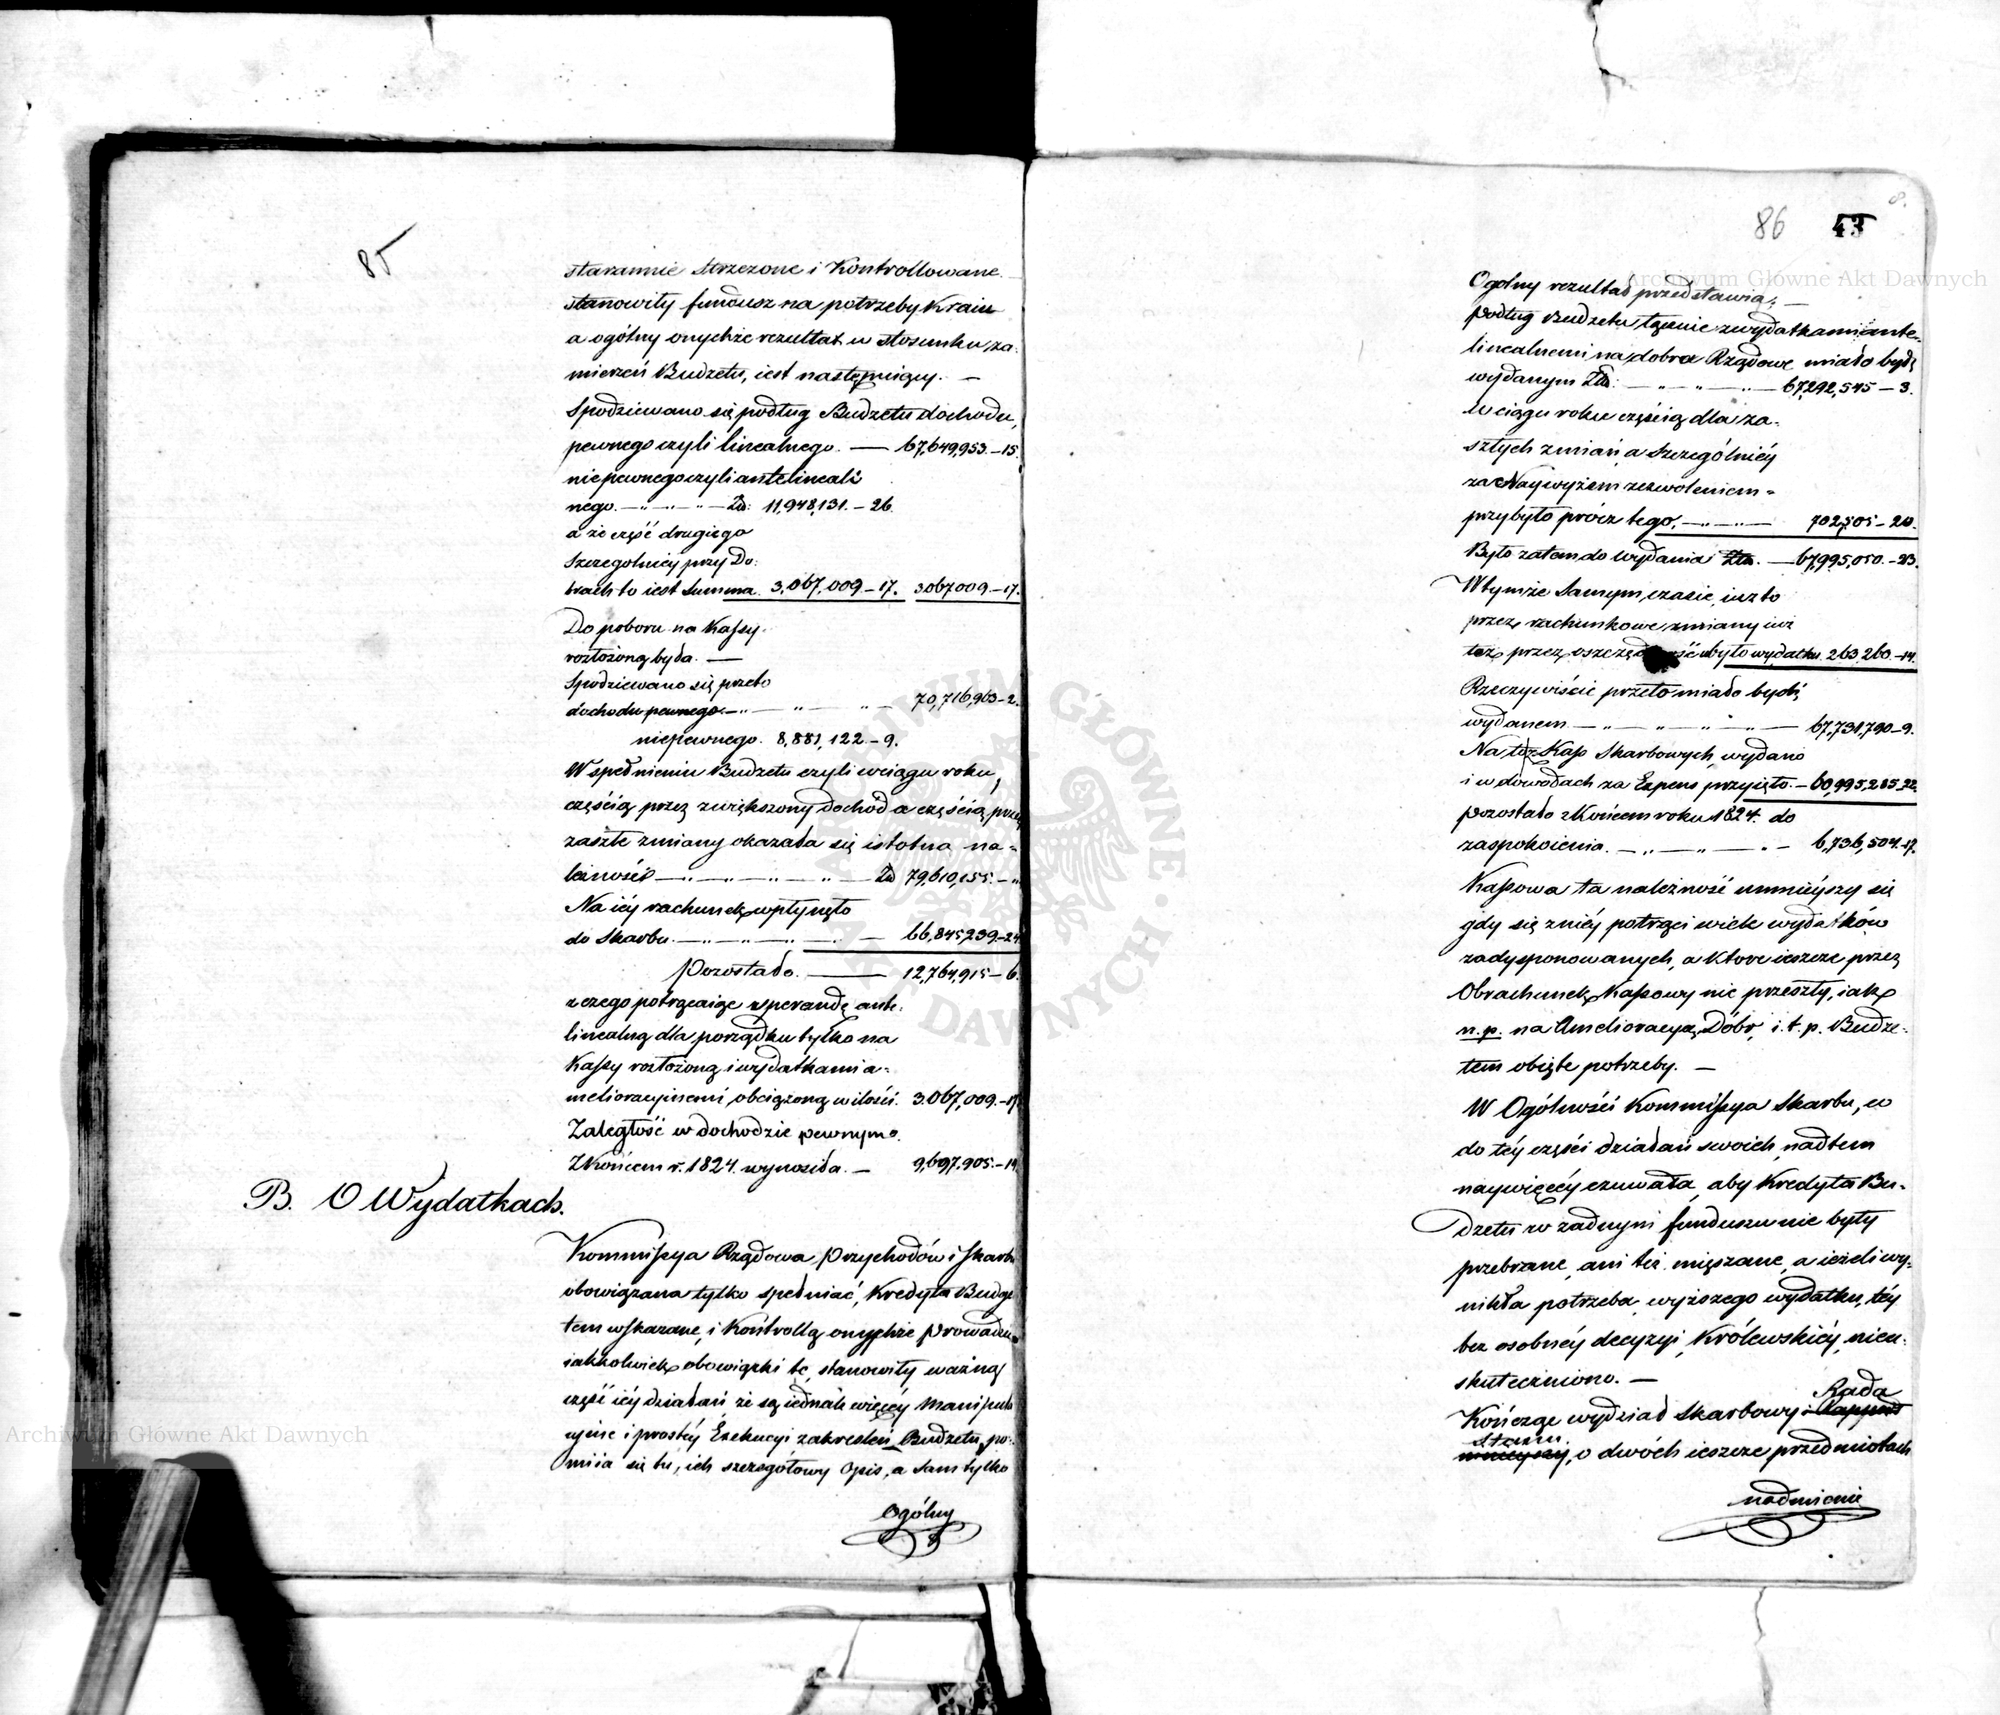 85
starannie strzeżone i Kontrollowane
stanowiły fundusz na potrzeby Kraiu
a ogólny onychże rezultat w stosunku za-
mierzeń Budżetu, iest następuiący. —
Spodziewano się podług Budżetu dochodu
pewnego czyli linealnego. — 67,649,953.—15.
niepewnego czyli antelineal-
nego. —„—„—„— Zł: 11,948,131.—26.
a że część drugiego
szczególniey przy Do:
brach to iest Summa 3,067,009.—17. 3,067,009.—17.
Do poboru na Kassy
rozłożoną była. —
Spodziewano się przeto
dochodu pewnego.—„— „ — „ — 70,716,963—2.
niepewnego. 8,881,122.—9.
W spełnieniu Budżetu czyli w ciągu roku,
częścią przez zwiększony dochód a częścią przez
zaszłe zmiany okazała się istotna na-
leżność —„—„—„—„— Zł 79,610,155.—„
Na iey rachunek wpłynęło
do Skarbu. —„—„—„— — 66,845,239.—24.
Pozostało. — 12,764,915—6.
z czego potrącaiąc sperandę ante-
linealną dla porządku tylko na
Kassy rozłożoną i wydatkami a-
melioracyinemi obciążoną w ilości. 3,067,009.—17.
Zaległość w dochodzie pewnym
z Końcem r. 1824. wynosiła. — 9,697,905.—19.
B. O Wydatkach.
Kommissya Rządowa Przychodów i Skarbu
obowiązana tylko spełniać, Kredyta Budże
tem wskazane, i Kontrollą onychże prowadzić
iakkolwiek obowiązki te, stanowiły ważną
część iey działań że są iednak więcey manipula
cyine i prostey Exekucyi zakreśleń Budżetu, po-
miia się tu, ich szczegółowy opis, a sam tylko
Ogólny
86 43
Ogólny rezultat przedstawia; —
Podług Budżetu łącznie z wydatkami ante-
linealnemi na dobra Rządowe miało bydź
wydanym Zł: —„—„—„— 67,292,545—3.
w ciągu roku częścią dla za-
szłych zmian, a szczególniey
za Naywyższem zezwoleniem
przybyło prócz tego, —„—„— 702,505—20.
Było zatem do wydania Zł. — 67,995,050.—23.
W tymże samym czasie, iuż to
przez rachunkowe zmiany iuż
też przez oszczędność ubyło wydatku 263,260.—14.
Rzeczywiście przeto miało bydź
wydanem —„—„—„—„— 67,731,790—9.
Na to z Kass Skarbowych, wydano
i w dowodach za Expens przyięto.— 60,995,285.22.
Pozostało z Końcem roku 1824. do
zaspokoienia. —„—„—„— 6,736,504.17.
Kassowa ta należność umnieyszy się
gdy się z niey potrąci wiele wydatków
zadysponowanych, a które ieszcze przez
Obrachunek Kassowy nie przeszły, iak
n.p. na Amelioracyą Dóbr, i.t.p. Budże-
tem obięte potrzeby. —
W Ogólności Kommissya Skarbu, co
do tey części działań swoich, nad tem
naywięcey czuwała, aby Kredyta Bu-
dżetu w żadnym funduszu nie były
przebrane, ani też mięszane, a ieżeli wy-
nikła potrzeba wyższego wydatku, tey
bez osobney decyzyi Królewskiey, nieu-
skuteczniono. —
Rada
Kończąc wydział Skarbowy
Stanu
o dwóch ieszcze przedmiotach
nadmienie
Archiwum Główne Akt Dawnych
Archiwum Główne Akt Dawnych
ARCHIWUM GŁÓWNE AKT DAWNYCH